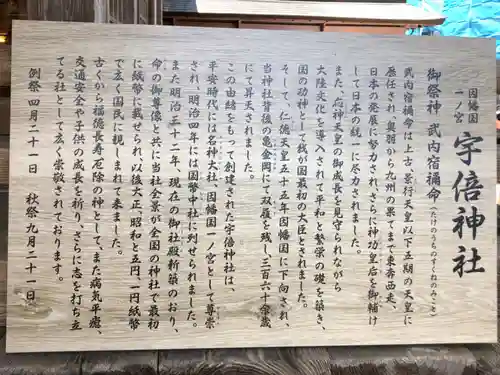 因幡国
一ノ宮
宇倍神社
御祭神 武内宿禰命(たけのうちのすくねのみこと)
武内宿禰命は上古・景行天皇以下五朝の天皇に
歴任され、奥羽から九州の果てまで東奔西走、
日本の発展に努力され、さらに神功皇后を御輔け
して日本の統一に尽力されました。
また、応神天皇の御成長を見守られながら
大陸文化を導入されて平和と繁栄の礎を築き、
国の功神として我が国最初の大臣とされました。
そして、仁徳天皇五十五年因幡国に下向され、
当神社背後の亀金岡にて双履を残し三百六十余歳
にて昇天されました。
この由緒をもって創建された宇倍神社は、
平安時代には名神大社、因幡国一ノ宮として尊崇
され、明治四年には国幣中社に列せられました。
また明治三十二年、現在の御社殿新築のおり、
命の御尊像と共に当社全景が全国の神社で最初
に紙幣に載せられ、以後大正、昭和と五円、一円紙幣
で広く国民に親しまれて来ました。
古くから福徳長寿厄除の神として、また病気平癒、
交通安全や子供の成長を祈り、さらに志を打ち立
てる社として広く崇敬されております。
例祭 四月二十一日 秋祭 九月二十一日